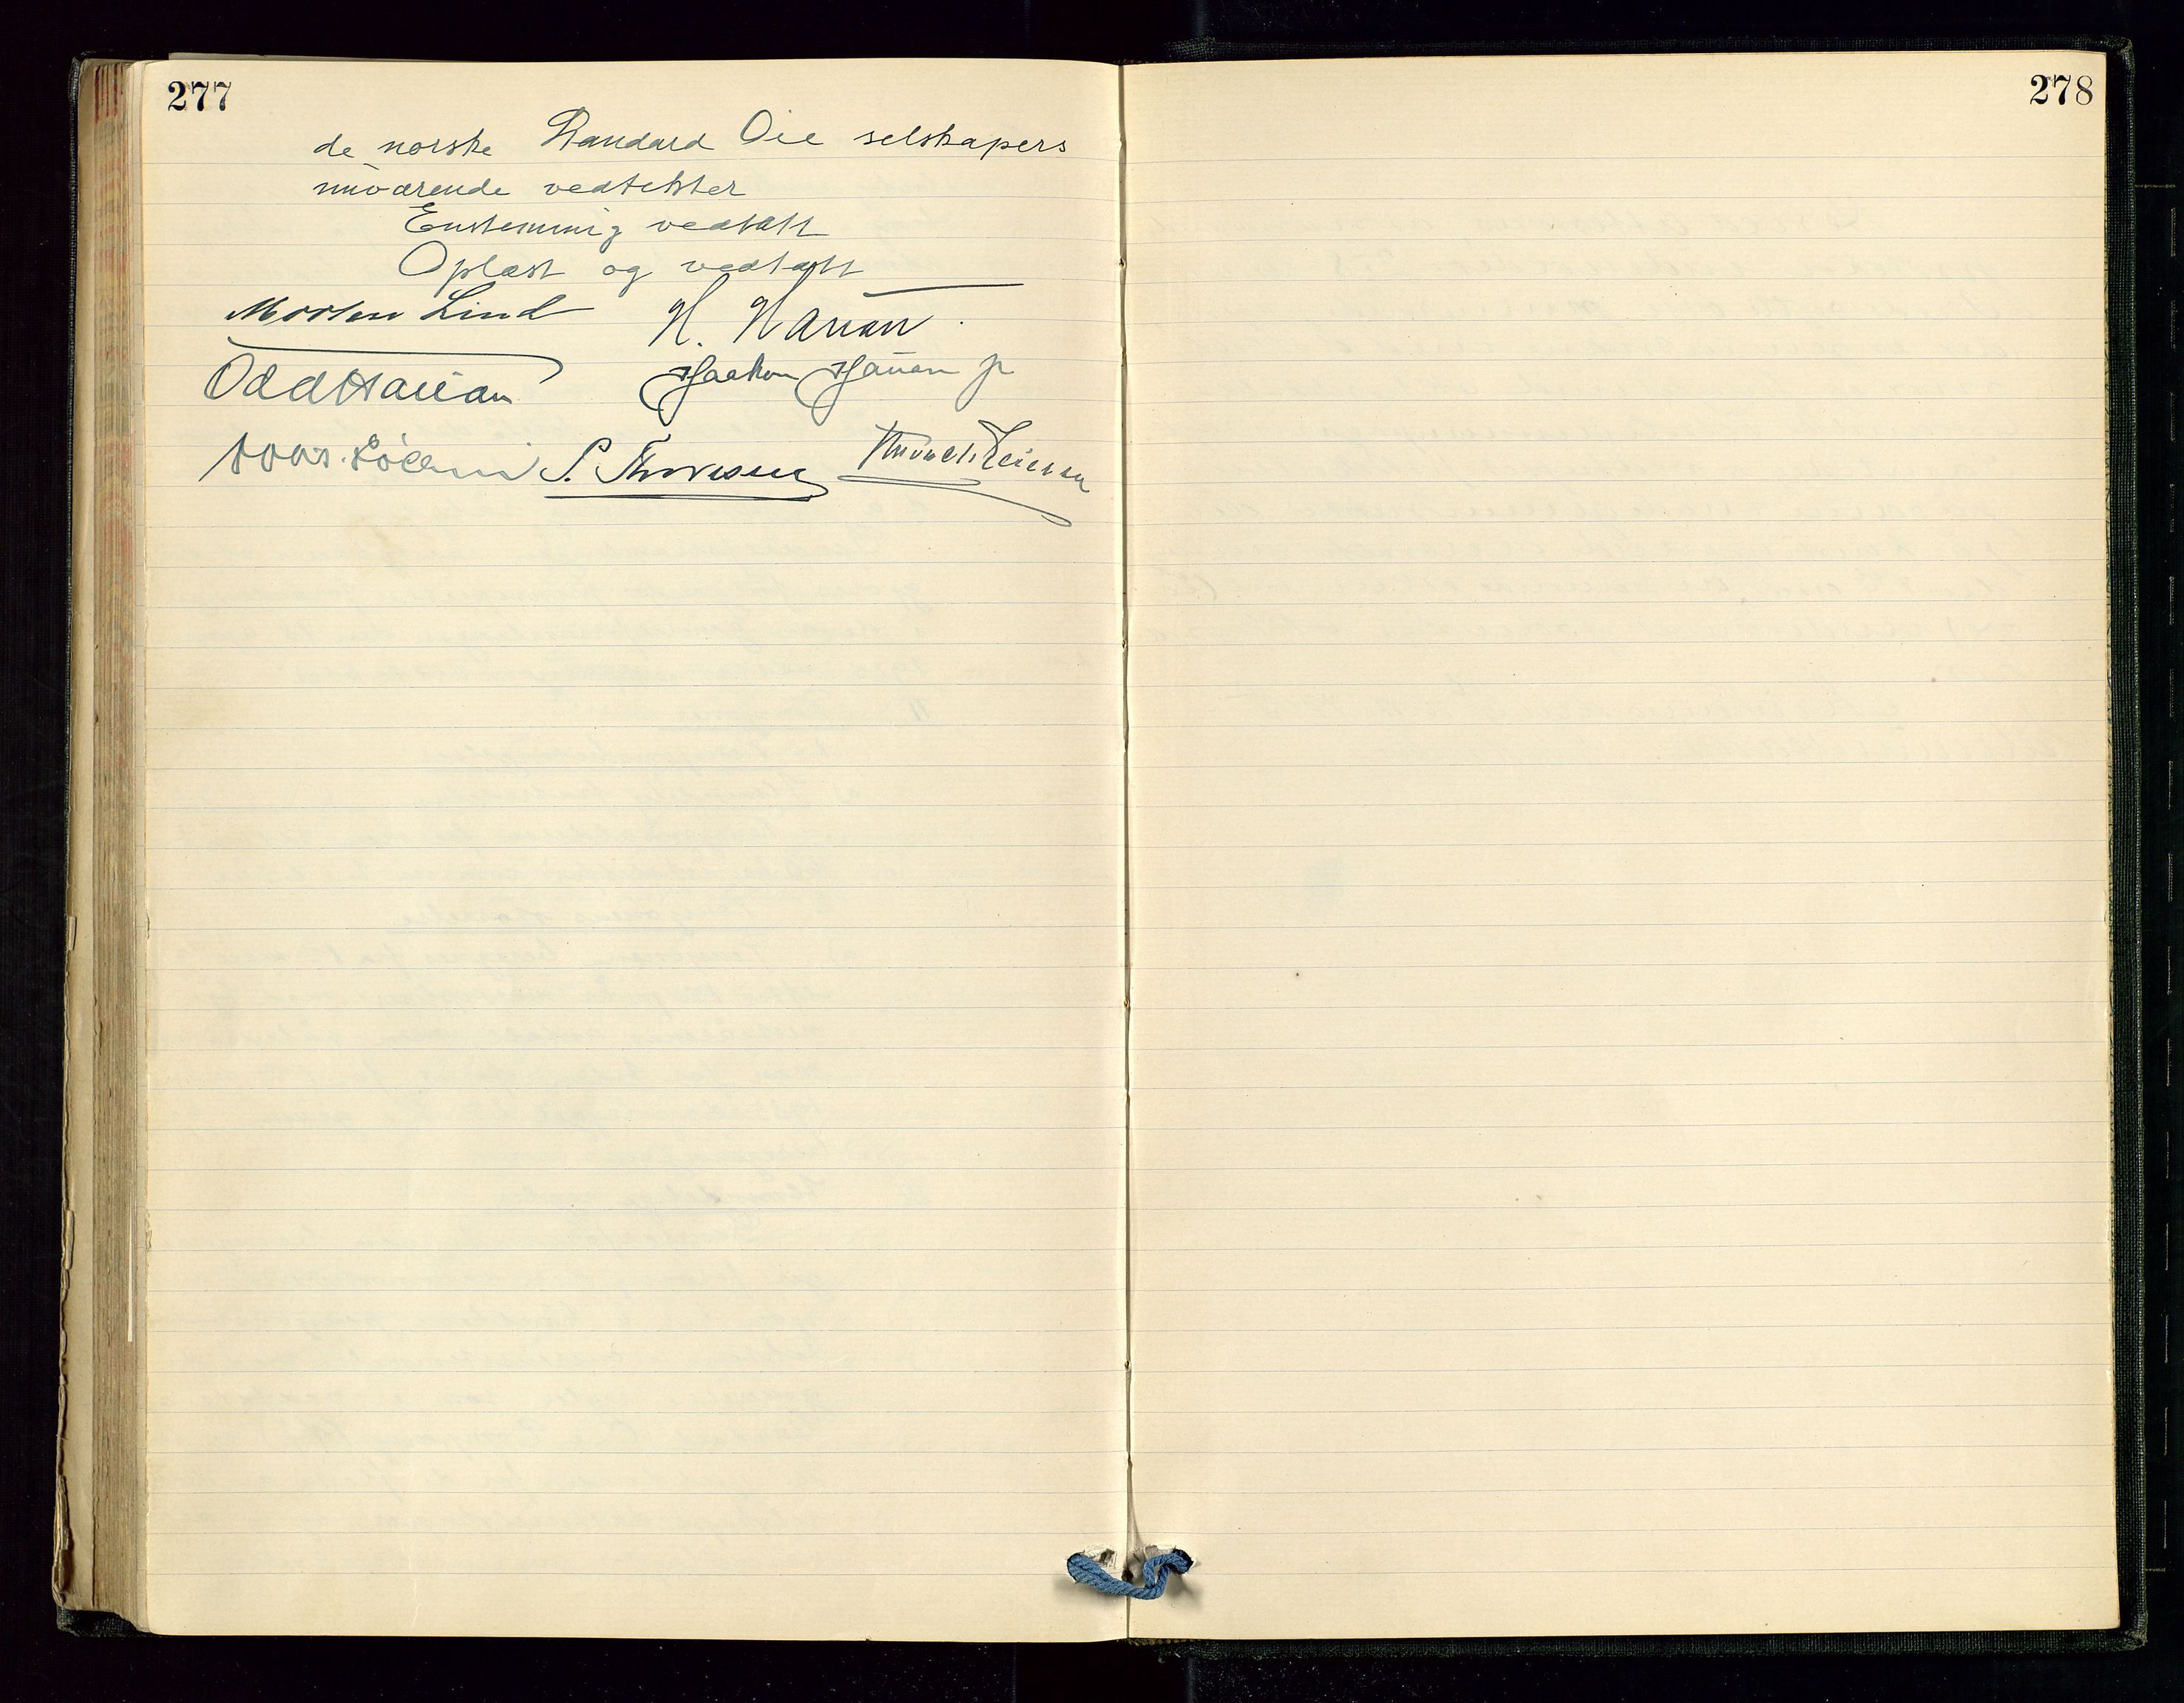 277
278
de norske Standard Oil selskapers
nuværende vedtekter
Enstemmig vedtatt
Oplæst og vedtatt
Morten Lind H. Hauan
Odd Hauan Haakon Hauan jr
S. Thoresen